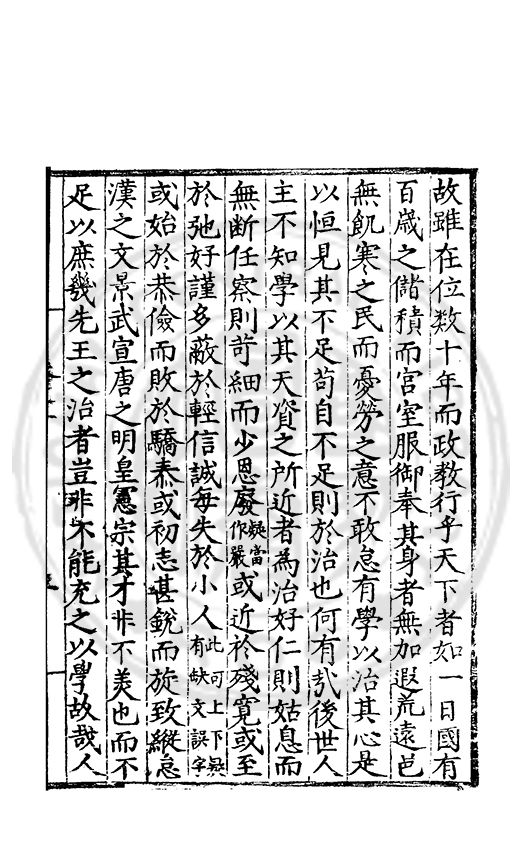 故雖在位數十年而政教行乎天下者如一日國有
百歲之儲積而宮室服御奉其身者無加遐荒遠邑
無飢寒之民而憂勞之意不敢怠有學以治其心是
以恒見其不足苟自不足則於治也何有㢤後世人
主不知學以其天資之所近者為治好仁則姑息而
無断任察則苛細而少恩廢疑當作嚴或近於殘寬或至
於弛好謹多蔽於輕信誠每失於小人此可上下疑有缺文誤字
或始於恭儉而敗於驕泰或初志甚銳而旋致縱怠
漢之文景武宣唐之明皇憲宗其才非不羙也而不
足以庶幾先王之治者豈非不能充之以學故哉人